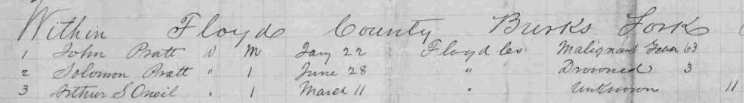 Within Floyd County Burks Fork
1 John Pratt " M Jany 22 Floyd Co Malignant Fever 63
2 Solomon Pratt " 1 June 28 " Drowned 3
3 Arthur S Oneil " 1 March 11 " Unknown 11